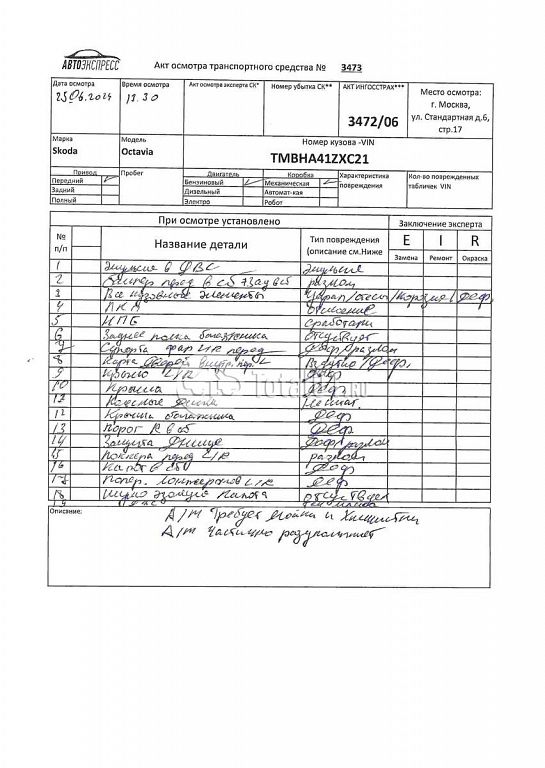 АВТОЭКСПРЕСС
Акт осмотра транспортного средства № 3473
Дата осмотра
25.06.2024
Время осмотра
13.30
Акт осмотре эксперта СК*
Номер убытка СК**
АКТ ИНГОССТРАХ***
3472/06
Место осмотра:
г. Москва,
ул. Стандартная д.6,
стр.17
Марка
Skoda
Модель
Octavia
Номер кузова -VIN
TMBHA41ZXC21
Привод
Передний
Задний
Полный
Пробег
Двигатель
Бензиновый
Дизельный
Электро
Коробка
Механическая
Автомат-кая
Робот
Характеристика
повреждения
Кол-во поврежденных
табличек VIN
При осмотре установлено
Заключение эксперта
№
п/п
Название детали
Тип повреждения
(описание см.Ниже
E I R
Замена Ремонт Окраска
1 Эмульсия в ДВС эмульсия
2 Бампер перед в сб зад в сб разлом
3 Все кузовные элементы /коррозия/ деф.
4 ЛКП отслоение
5 НПБ сработали
6 Заднее полка багажника отсутствует
7 фар L/R перед деф, разлом
8 Карта дверей внутр. деф.
9 Крыло L/R деф
10 Крыша деф
11 Колесные диски
12 Крышка багажника деф
13 Порог R в сб деф
14 Защита днище деф разлом
15 перед L/R разлом
16 Капот в сб деф
17 лонжеронов L/R деф
18 Шумо изоляция капота отсутствует
19
Описание:
А/т Требует мойки и Химчистки
А/т Частично разукомплект
Total RU